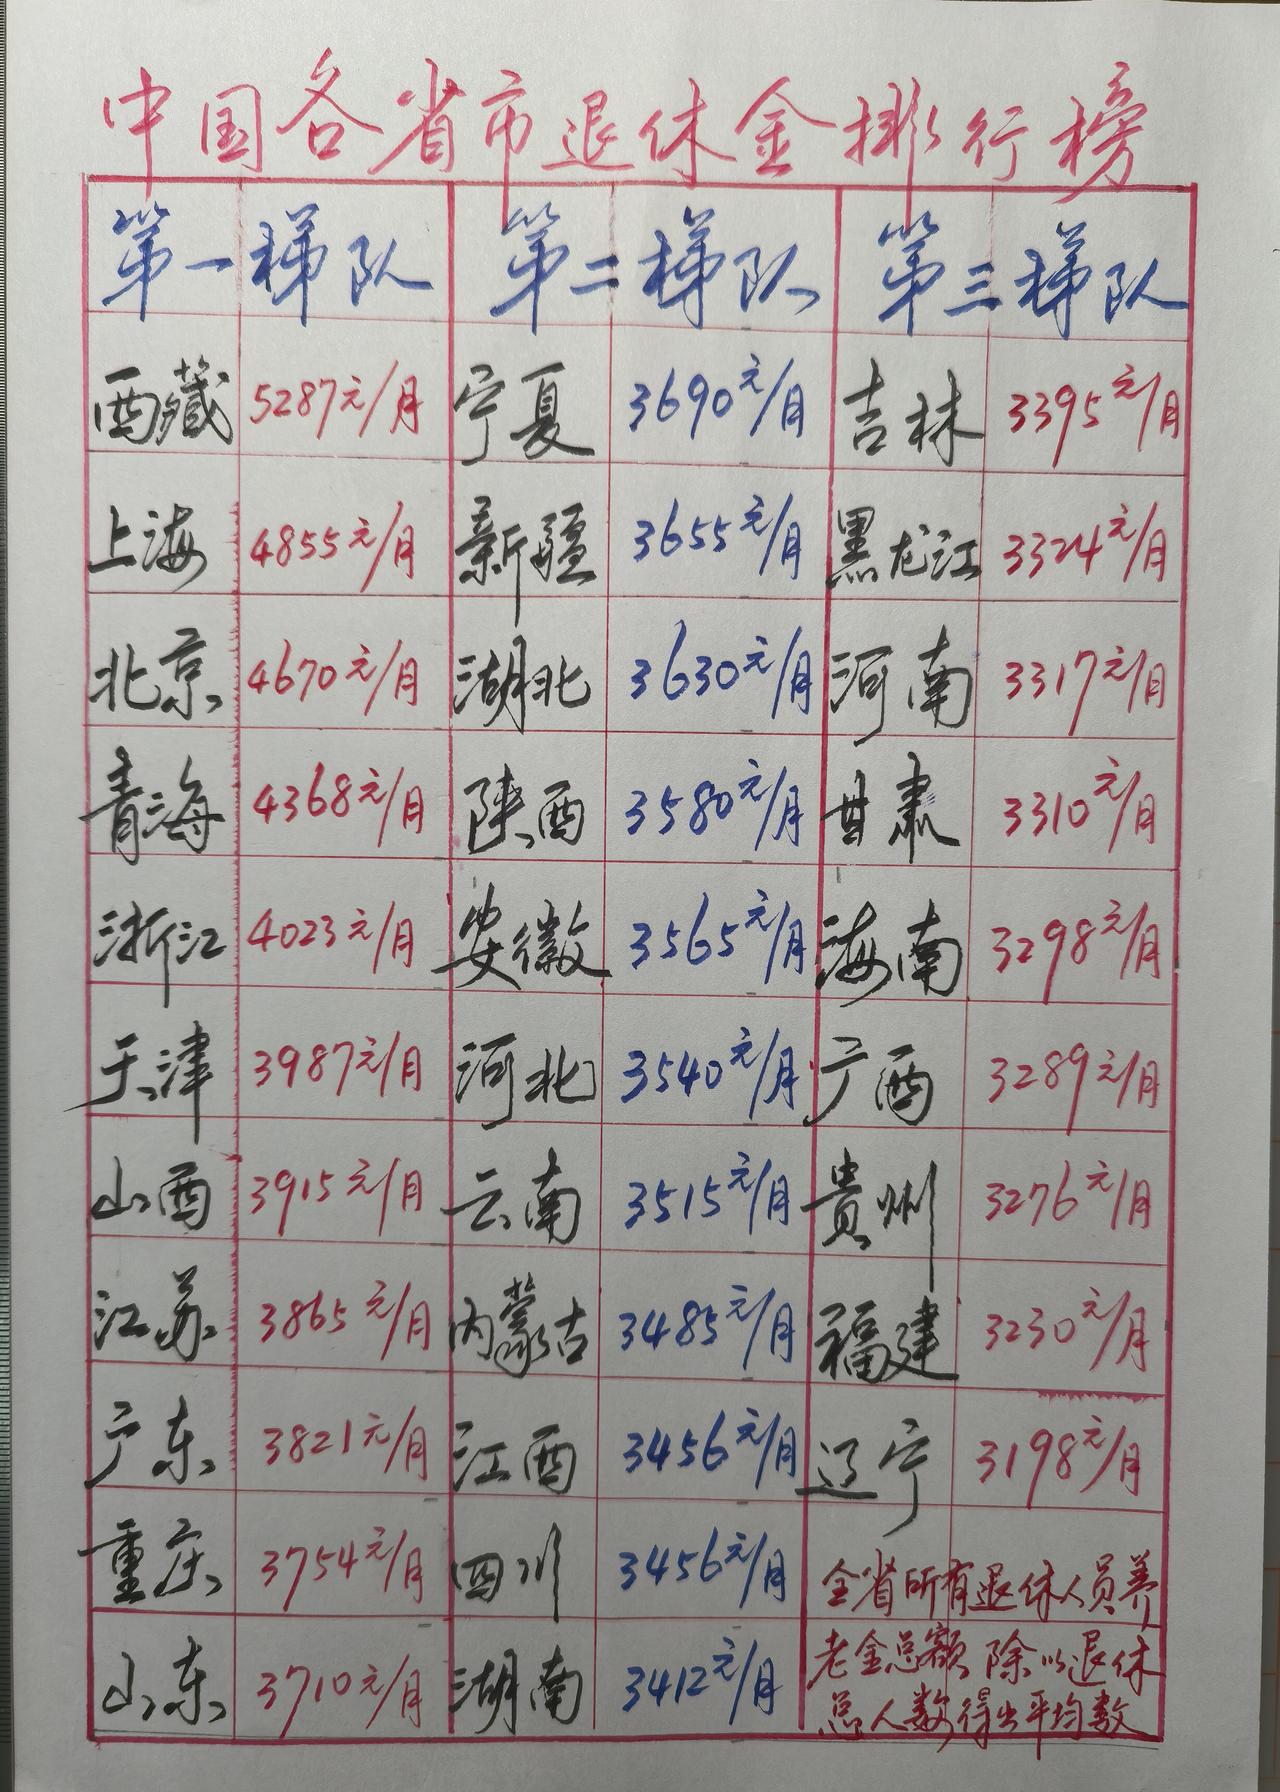 中国各省市退休金排行榜
第一梯队 第二梯队 第三梯队
西藏 5287元/月 宁夏 3690元/月 吉林 3395元/月
上海 4855元/月 新疆 3655元/月 黑龙江 3324元/月
北京 4670元/月 湖北 3630元/月 河南 3317元/月
青海 4368元/月 陕西 3580元/月 甘肃 3310元/月
浙江 4023元/月 安徽 3565元/月 海南 3298元/月
天津 3987元/月 河北 3540元/月 广西 3289元/月
山西 3915元/月 云南 3515元/月 貴州 3276元/月
江苏 3865元/月 内蒙古 3485元/月 福建 3230元/月
广东 3821元/月 江西 3456元/月 辽宁 3198元/月
重庆 3754元/月 四川 3456元/月 全省所有退休人员养
山东 3710元/月 湖南 3412元/月 老金总额除以退休
总人数得出平均数